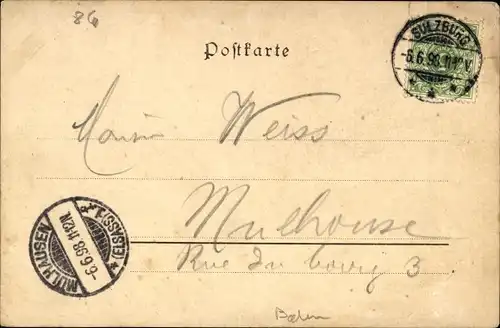 86
Postkarte
SULZBURG
-6.6.98. 11-12V.
Weiss
Mulhouse
Rue du bourg 3
MÜLHAUSEN
-6.6.98. 1-12N.
(ELSASS) 1.
Baden